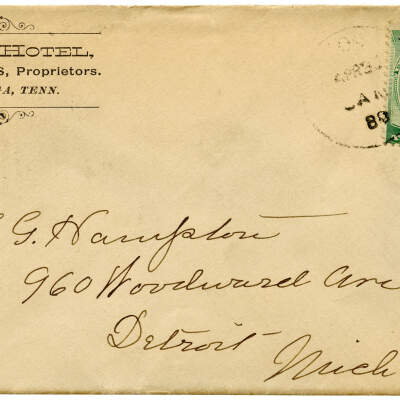 HOTEL,
S, Proprietors.
A, TENN.
APR 5
8 AM
89
G. Hampton
960 Woodward Ave
Detroit
Mich